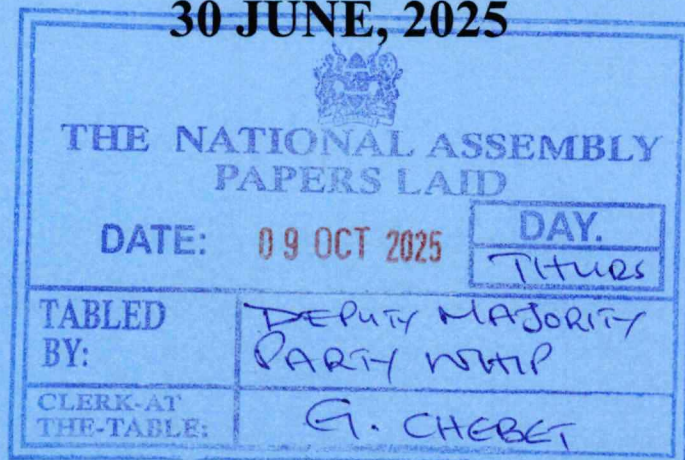 30 JUNE, 2025
THE NATIONAL ASSEMBLY
PAPERS LAID
DATE: 09 OCT 2025 DAY.
THURS
TABLED BY: DEPUTY MAJORITY
PARTY WHIP
CLERK-AT
THE-TABLE: G. CHEBET